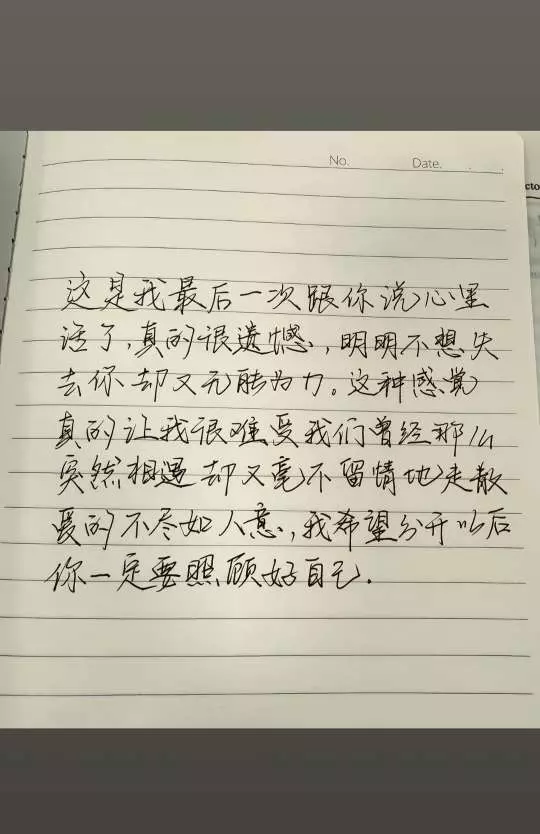 No.
Date.
cto
这是我最后一次跟你说心里
话了,真的很遗憾,明明不想失
去你却又无能为力。这种感觉
真的让我很难受我们曾经那么
突然相遇却又毫不留情地走散
爱的不尽如人意,我希望分开以后
你一定要照顾好自己.